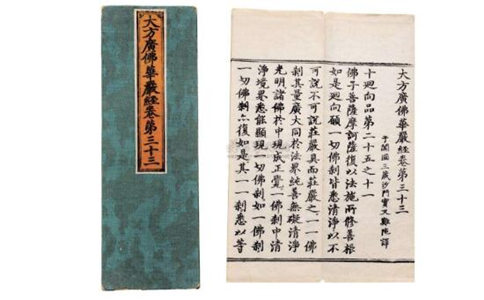 大方廣佛華嚴經卷第三十三
大方廣佛華嚴經卷第三十三
于闐國三藏沙門實叉難陀譯
十廻向品第二十五之十一
佛子菩薩摩訶薩復以法施所修善根
如是廻向願一切佛刹皆悉清淨以不
可說不可說莊嚴具而莊嚴之一一佛
刹其量廣大同於法界純善無礙清淨
光明諸佛於中現成正覺一佛刹中清
淨境界悉能顯現一切佛刹如一佛刹
一切佛刹亦復如是其一一刹悉以等